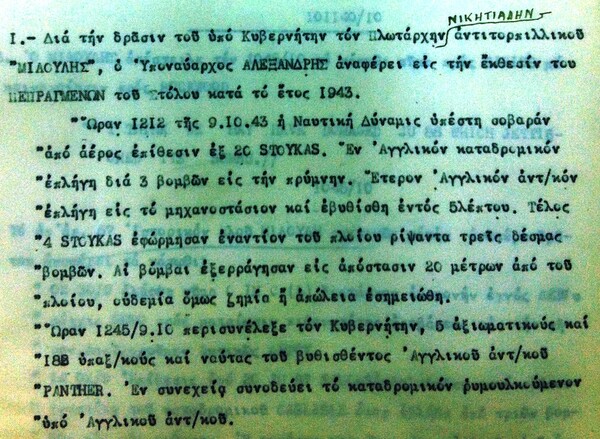 ΝΙΚΗΤΙΑΔΗΝ
Ι.- Διά τήν δρᾶσιν τοῦ ὑπό Κυβερνήτην τόν Πλωτάρχην ἀντιτορπιλλικοῦ
"ΜΙΑΟΥΛΗΣ", ὁ Ὑποναύαρχος ΑΛΕΞΑΝΔΡΗΣ ἀναφέρει εἰς τήν ἔκθεσίν του
ΠΕΠΡΑΓΜΕΝΩΝ τοῦ Στόλου κατά τό ἔτος 1943.
"Ὥραν 1212 τῆς 9.10.43 ἡ Ναυτική Δύναμις ὑπέστη σοβαράν
"ἀπό ἀέρος ἐπίθεσιν ἐξ 20 STOYKAS. Ἕν Ἀγγλικόν καταδρομικόν
"ἐπλήγη διά 3 βομβῶν εἰς τήν πρύμνην. Ἕτερον Ἀγγλικόν ἀντ/κόν
"ἐπλήγη εἰς τό μηχανοστάσιον καί ἐβυθίσθη ἐντός 5λέπτου. Τέλος
"4 STOYKAS ἐφώρμησαν ἐναντίον τοῦ πλοίου ρίψαντα τρεῖς δέσμας
"βομβῶν. Αἱ βόμβαι ἐξερράγησαν εἰς ἀπόστασιν 20 μέτρων ἀπό τοῦ
"πλοίου, οὐδεμία ὅμως ζημία ἤ ἀπώλεια ἐσημειώθη.
"Ὥραν 1245/9.10 περισυνέλεξε τόν Κυβερνήτην, 5 ἀξιωματικούς καί
"188 ὑπαξ/κούς καί ναύτας τοῦ βυθισθέντος Ἀγγλικοῦ ἀντ/κοῦ
"PANTHER. Ἐν συνεχείᾳ συνοδεύει τό καταδρομικόν ρυμουλκούμενον
"ὑπό Ἀγγλικοῦ ἀντ/κοῦ.